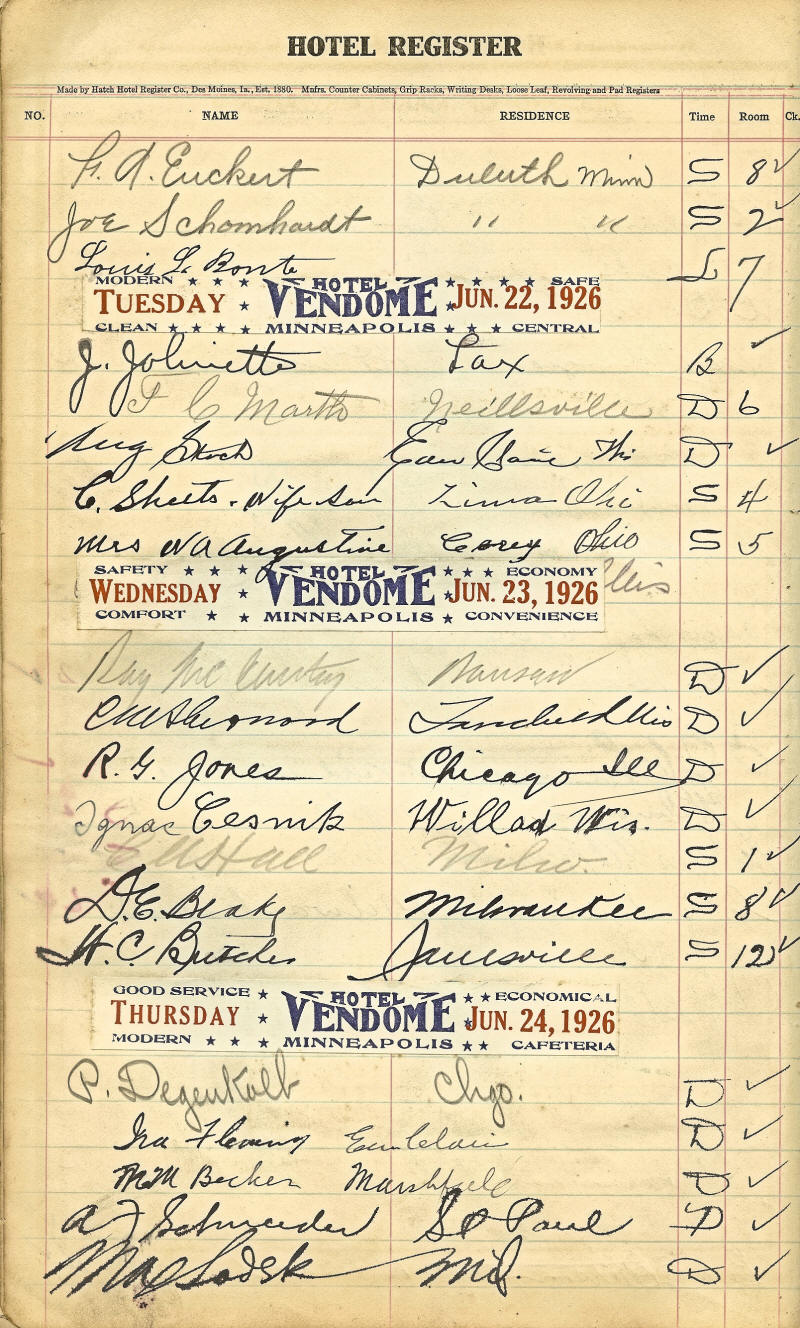 HOTEL REGISTER
Made by Hatch Hotel Register Co., Des Moines, Ia., Est. 1880. Mnfrs. Counter Cabinets, Grip Racks, Writing Desks, Loose Leaf, Revolving and Pad Registers
NO. NAME RESIDENCE Time Room Ck.
F. A. Euckert Duluth Minn S 8 ✓
Joe Schomhardt " " S 2 ✓
Louis L. Bonte L 7
MODERN ★ ★ ★ HOTEL ★ ★ ★ ★ SAFE
TUESDAY ★ VENDOME ★ JUN. 22, 1926
CLEAN ★ ★ ★ ★ MINNEAPOLIS ★ ★ ★ CENTRAL
J. Johnette B ✓
F C Neillsville D 6
Aug D ✓
C. Sheets. Wife Son Lima Ohi S 4
Mrs W A Augustine Carey Ohio S 5
SAFETY ★ ★ ★ HOTEL ★ ★ ★ ECONOMY
WEDNESDAY ★ VENDOME ★ JUN. 23, 1926
COMFORT ★ ★ MINNEAPOLIS ★ ★ CONVENIENCE
Ray Mc Wausau D ✓
Wis D ✓
R. G. Jones Chicago Ill D ✓
Ignac Cesnik Willard Wis. D ✓
Hall Milw. S 1 ✓
D. E. Blake Milwaukee S 8 ✓
H. C. Butcher Janesville S 12 ✓
GOOD SERVICE ★ HOTEL ★ ★ ECONOMICAL
THURSDAY ★ VENDOME ★ JUN. 24, 1926
MODERN ★ ★ ★ MINNEAPOLIS ★ ★ CAFETERIA
P. Degenkolb Chgo. D ✓
Ira Fleming D ✓
M M Becker Marshfield D ✓
A J Schroeder St Paul D ✓
Max Mil. D ✓